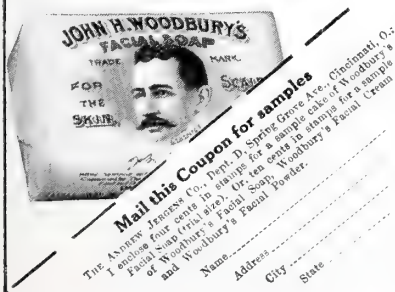 JOHN H. WOODBURY'S
FACIAL SOAP
TRADE MARK
FOR
THE
SKIN
SCALP
Mail this Coupon for samples
THE ANDREW JERGENS CO., Dept. D, Spring Grove Ave., Cincinnati, O.:
I enclose four cents in stamps for a sample cake of Woodbury's
Facial Soap (trial size). Or ten cents in stamps for a sample
of Woodbury's Facial Soap, Woodbury's Facial Cream
and Woodbury's Facial Powder.
Name
Address
City
State